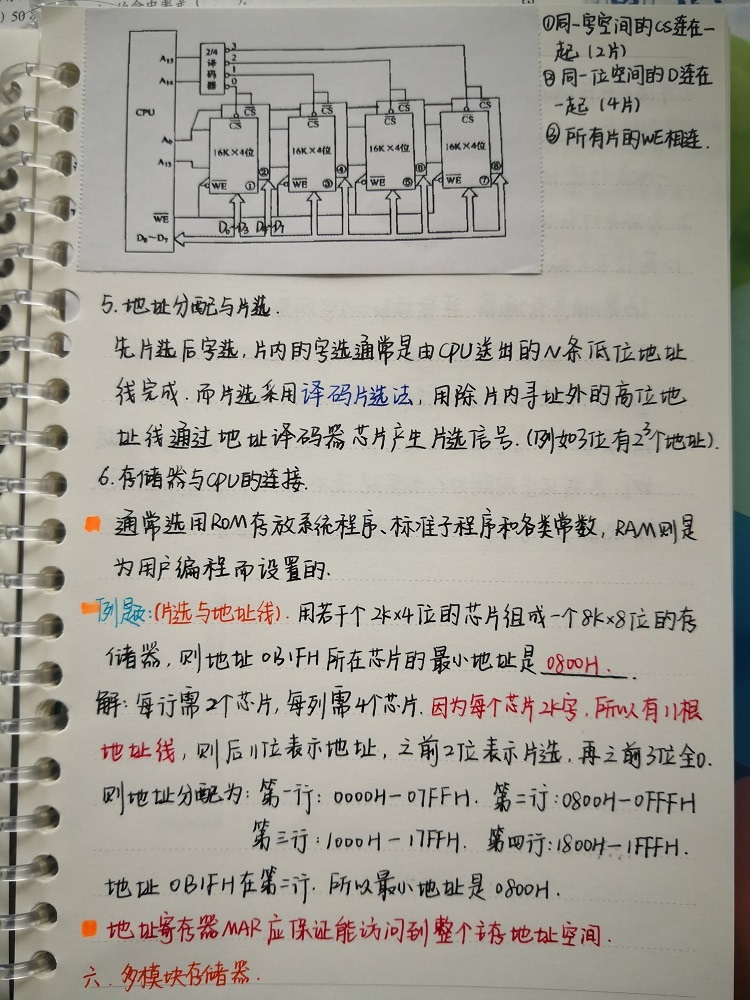 ①同一字空间的CS连在一
起(2片)
②同一位空间的D连在
一起(4片)
③所有片的WE相连.
2/4
译
码
器
3
2
1
0
A15
A14
CPU
A0
A13
WE
D0~D7
CS
CS
CS
CS
CS
CS
CS
CS
16K×4位
16K×4位
16K×4位
16K×4位
WE ①
②
WE ③
④
WE ⑤
⑥
WE ⑦
⑧
D0~D3 D4~D7
5. 地址分配与片选.
先片选后字选,片内的字选通常是由CPU送出的N条低位地址
线完成.而片选采用译码片选法,用除片内寻址外的高位地
址线通过地址译码器芯片产生片选信号.(例如3位有2³个地址).
6. 存储器与CPU的连接.
通常选用ROM存放系统程序、标准子程序和各类常数,RAM则是
为用户编程而设置的.
例题:(片选与地址线).用若干个2K×4位的芯片组成一个8K×8位的存
储器,则地址0B1FH所在芯片的最小地址是 0800H.
解:每行需2个芯片,每列需4个芯片.因为每个芯片2K字,所以有11根
地址线,则后11位表示地址,之前2位表示片选,再之前3位全0.
则地址分配为:第一行:0000H-07FFH. 第二行:0800H-0FFFH
第三行:1000H-17FFH. 第四行:1800H-1FFFH.
地址0B1FH在第二行.所以最小地址是0800H.
地址寄存器MAR应保证能访问到整个主存地址空间.
六. 多模块存储器.